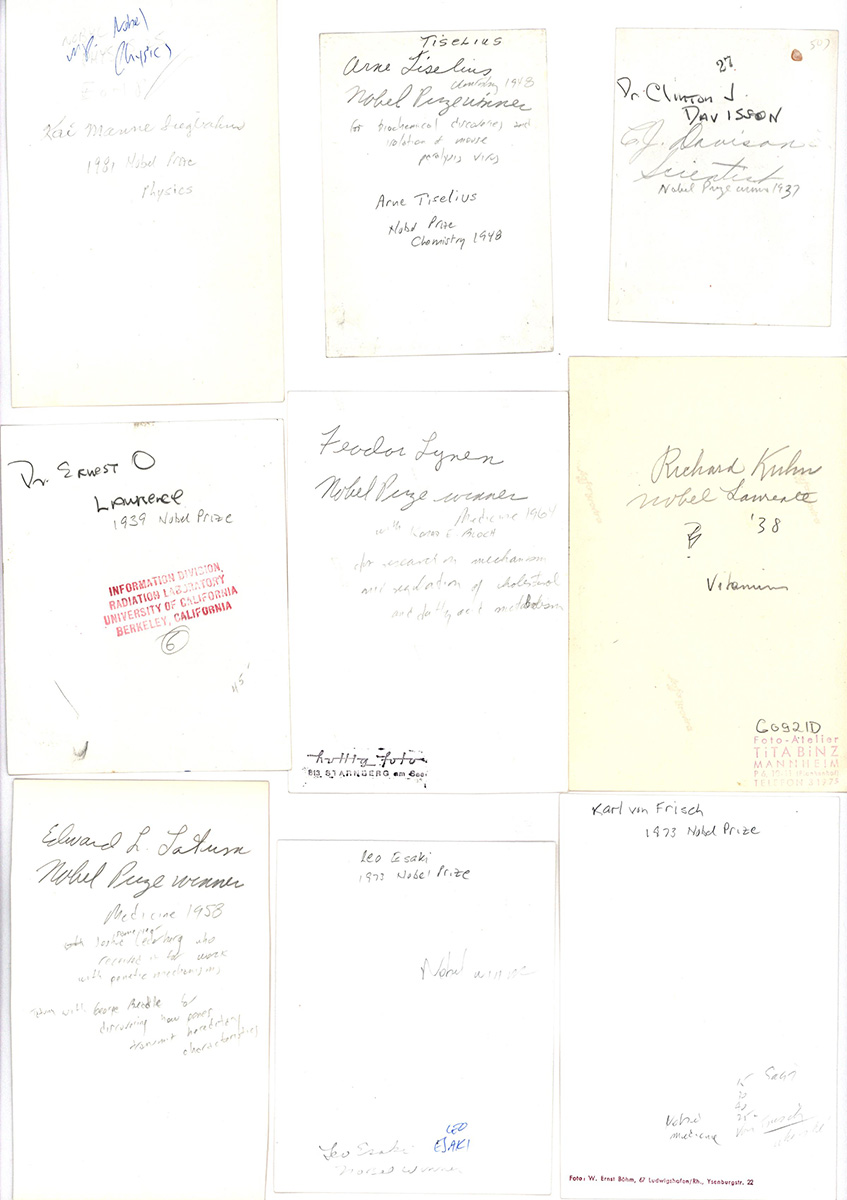 Nobel
Physics
Kai Manne Siegbahn
1981 Nobel Prize
Physics
TISELIUS
Arne Tiselius
Chemistry 1948
Nobel Prize winner
for biochemical discoveries and
isolation of mouse
paralysis virus
Arne Tiselius
Nobel Prize
Chemistry 1948
507
27
Dr. CLINTON J.
DAVISSON
C.J. Davison
Scientist
Nobel Prize winner 1937
Dr. ERNEST O
LAWRENCE
1939 Nobel Prize
INFORMATION DIVISION,
RADIATION LABORATORY
UNIVERSITY OF CALIFORNIA
BERKELEY, CALIFORNIA
6
Feodor Lynen
Nobel Prize winner
Medicine 1964
with E. BLOCH
for research on mechanism
and regulation of cholesterol
and fatty acid metabolism
foto
813 STARNBERG am See
Richard Kuhn
Nobel Laureate
'38
Vitamins
G0921D
Foto-Atelier
TITA BINZ
MANNHEIM
TELEFON 21975
Edward L. Tatum
Nobel Prize winner
Medicine 1958
same year
with Lederberg who
received it for work
with genetic mechanisms
team with George Beadle for
discovering how genes
transmit hereditary
characteristics
Leo Esaki
1973 Nobel Prize
Nobel winner
LEO
ESAKI
Leo Esaki
Nobel winner
Karl von Frisch
1973 Nobel Prize
Nobel
medicine
Von Frisch
Foto: W. Ernst Böhm, 67 Ludwigshafen/Rh., Ysenburgstr. 22